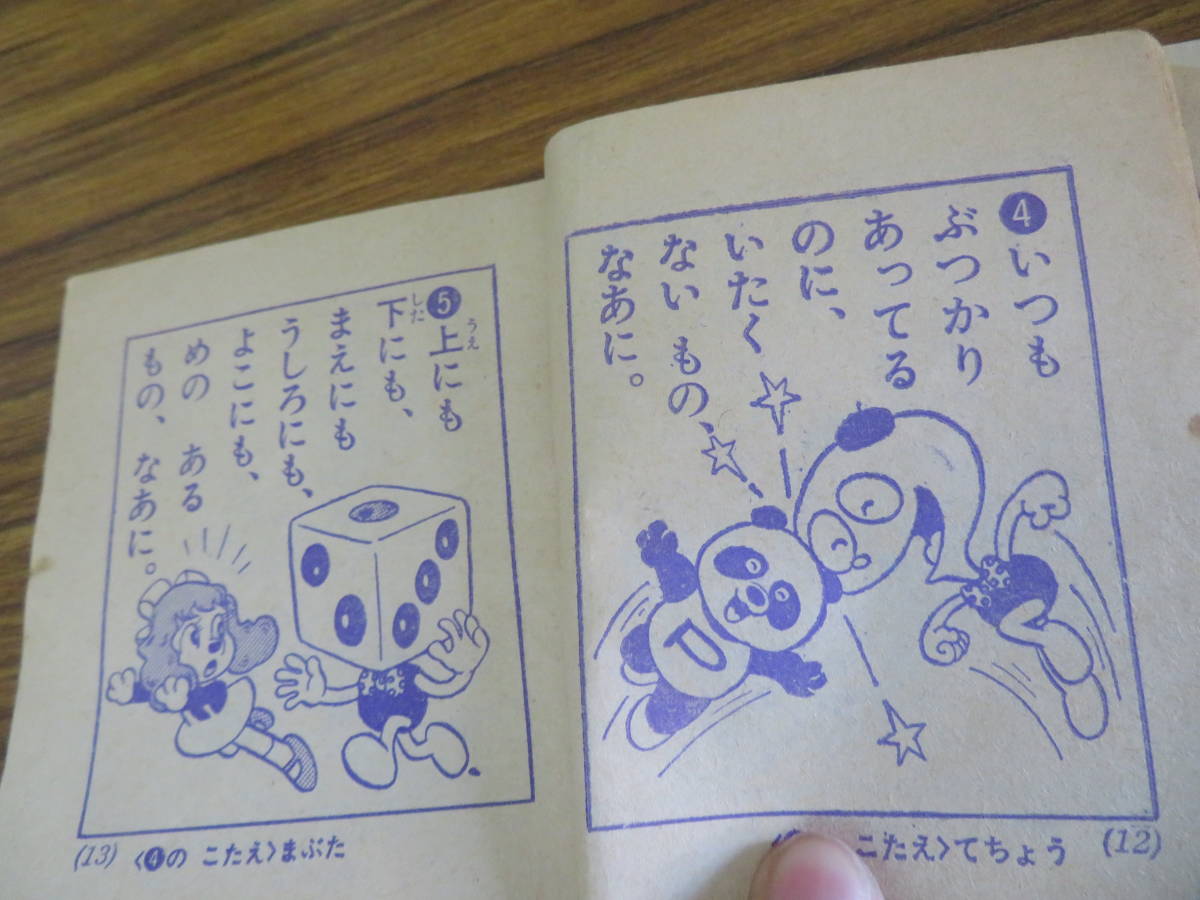 ❹いつも
ぶつかり
あってる
のに、
いたく
ない もの、
なあに。
こたえ〉てちょう
(12)
❺上にも
うえ
下にも、
した
まえにも
うしろにも、
よこにも、
めの ある
もの、なあに。
(13)
〈❹の こたえ〉まぶた